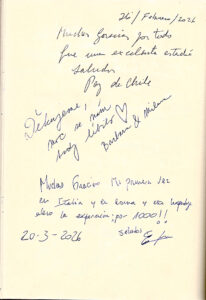 26/Febrero/2026
Muchas Gracias por todo
fue una excelente estadía
saludos
Paz de Chile
Děkujeme,
moc se nám
tady líbilo ♡
Barbora & Milan
Muchas Gracias Mi primera vez
en Italia y en Roma y una
elevo la experiencia ¡por 1000!!
20-3-2026 saludos